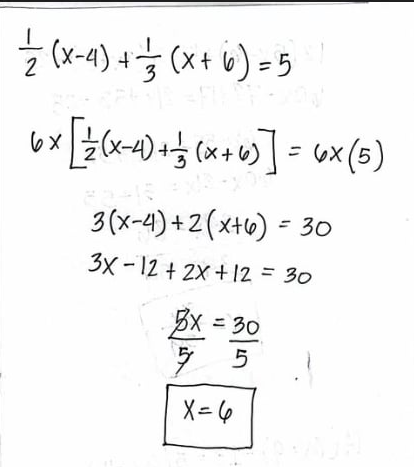 1/2 (x-4) + 1/3 (x+6) = 5
6x [1/2 (x-4) + 1/3 (x+6)] = 6x(5)
3(x-4) + 2(x+6) = 30
3x - 12 + 2x + 12 = 30
5x/5 = 30/5
x = 6